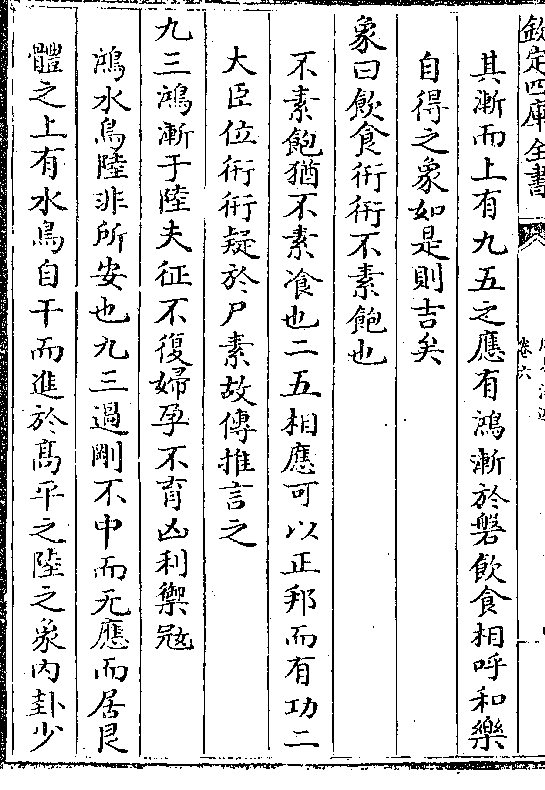 欽定四庫全書
卷六
其漸而上有九五之應有鴻漸於磐飲食相呼和樂
自得之象如是則吉矣
象曰飲食衎衎不素飽也
不素飽猶不素飡也二五相應可以正邦而有功二
大臣位衎衎疑於尸素故傳推言之
九三鴻漸于陸夫征不復婦孕不育凶利禦冦
鴻水鳥陸非所安也九三過剛不中而无應而居艮
體之上有水鳥自干而進於髙平之陸之象内卦少